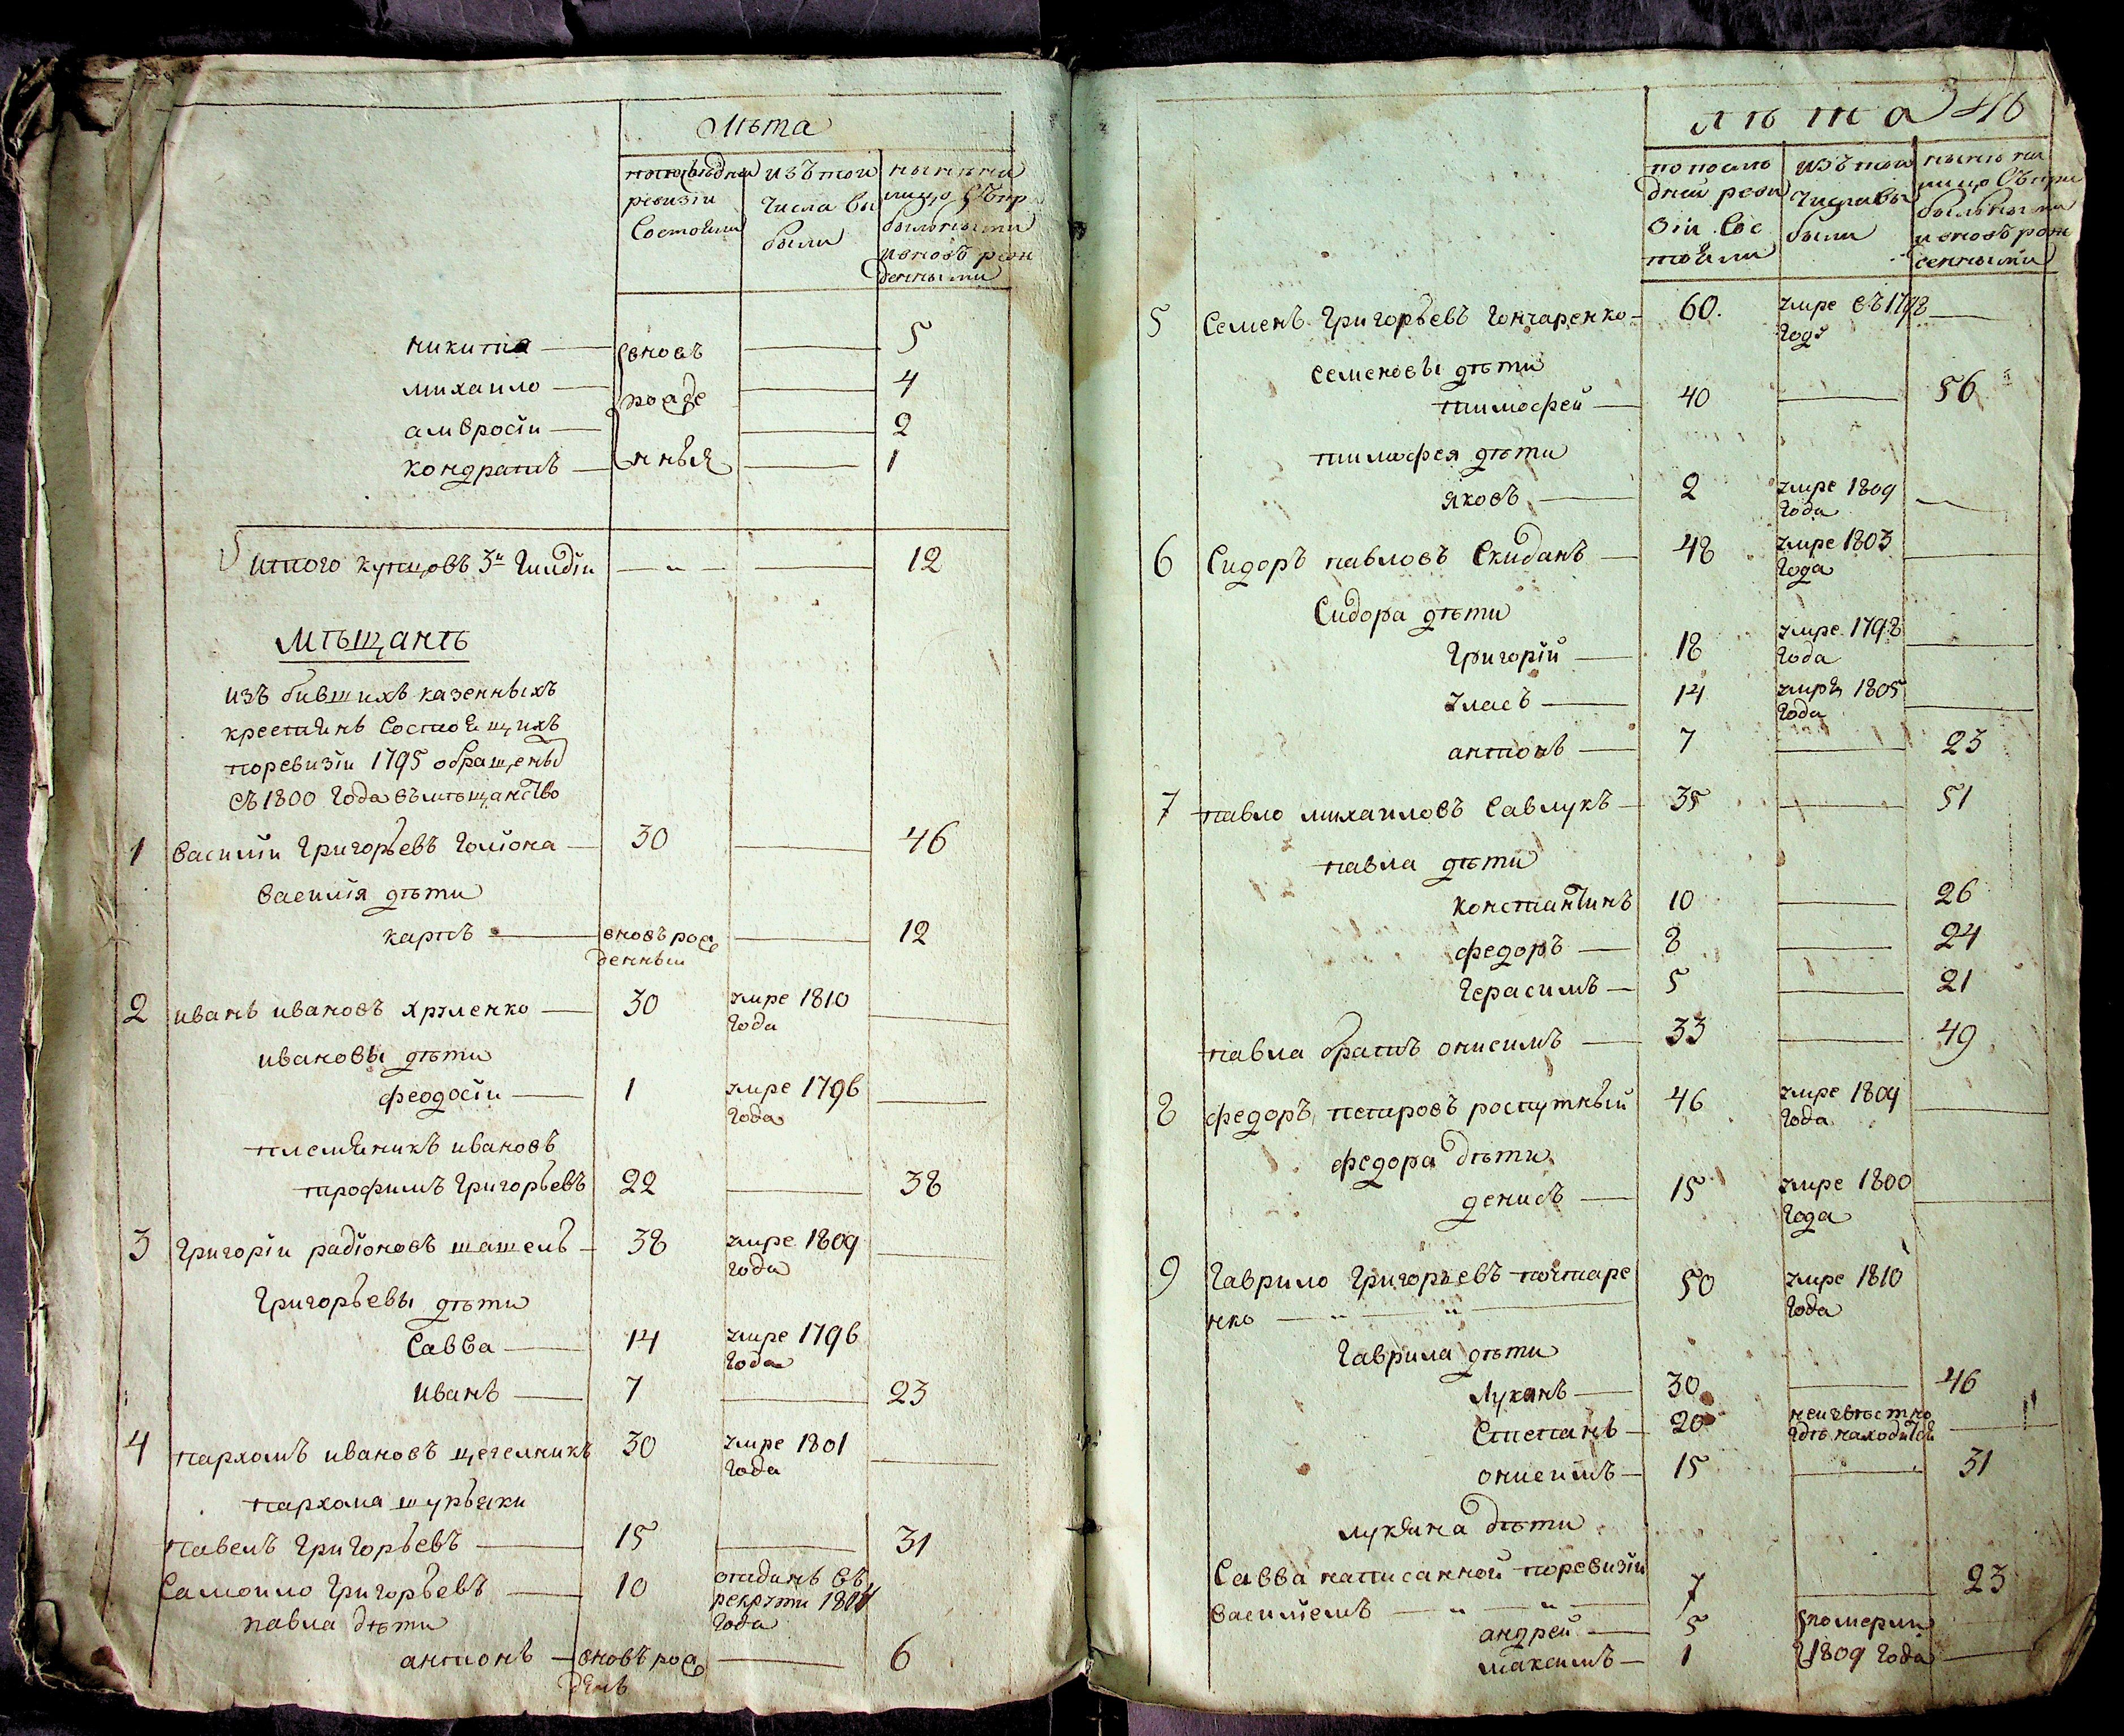 лѣта
попослѣдней изъ тои нынѣ на
ревизiи числа вы лицо съ при
Состояли были былыми
ивновъ рож
денными
никита — вновь — 5
михаило — рожде — 4
амвросiи — 2
кондратъ — нныя — 1
итого купцовъ 3й Гилдiи — " — 12
мѣщанъ
изъ бившихъ казенныхъ
крестянъ Состоящихъ
поревизiи 1795 обращены
съ 1800 года въмѣщанство
1 василiи Григорьевъ — 30 — 46
василiя дѣти
карпъ — вновъ рож — 12
денныи
2 иванъ ивановъ — 30 умре 1810
года
ивановы дѣти
феодосiи — 1 умре 1796
года
племяникъ ивановъ
трофимъ Григорьевъ 22 — 38
3 Григорiи радiоновъ шашель — 38 умре 1809
года
Григорьевы дѣти
Савва — 14 умре 1796
года
иванъ — 7 — 23
4 пархомъ ивановъ цегелникъ 30 умре 1801
года
пархома шурьяки
павелъ Григорьевъ — 15 — 31
Самоило Григорьевъ — 10 отданъ въ
рекруты
года
павла дѣти
антонъ — вновъ рож — 6
денъ
лѣта 46
по послѣ изъ тои нынѣ на
дней реви числа вы лицо съ при
зiи Сос были былыми
тояли ивновъ рож
денными
5 Семенъ Григорьевъ Гончаренко — 60. умре въ 1798 —
годѣ
семеновы дѣти
тимофей — 40 — 56
тимофея дѣти
яковъ — 2 умре 1809 —
года
6 Сидоръ павловъ Скиданъ — 48 умре 1803 —
года
Сидора дѣти
Григорiй — 18 умре 1798 —
года
власъ — 14 умре 1805 —
года
антонъ — 7 — 23
7 павло михаиловъ Савлукъ — 35 — 51
павла дѣти
константинъ 10 — 26
федоръ — 8 — 24
Герасимъ — 5 — 21
павла братъ онисимъ — 33 — 49
8 федоръ петровъ роспутный 46 умре 1809 —
года
федора дѣти
денисъ — 15 умре 1800 —
года
9 Гаврило Григорьевъ почтаре 50 умре 1810
нко — " — " — года
Гаврила дѣти
Лукянъ — 30 — 46
Степанъ — 20 неизвѣстно —
гдѣ находится
онисимъ — 15 — 31
лукяна дѣти
Савва написанной поревизiи
василiемъ — " — " — 7 — 23
андрей — 5 померли
максимъ — 1 1809 года —